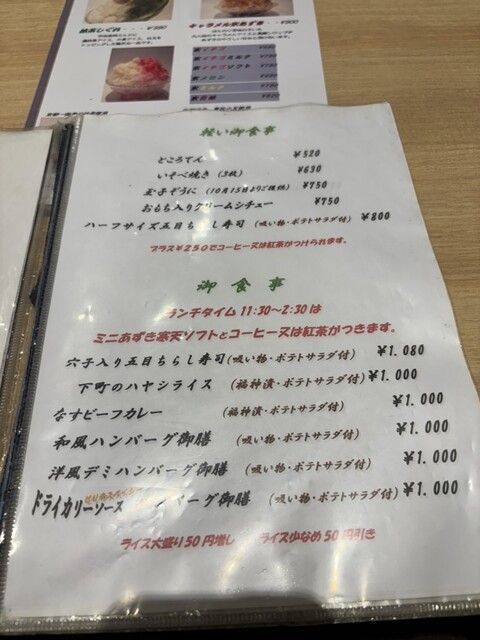 キャラメル氷あずき・・¥900
氷イチゴ ¥580
氷イチゴミルク
氷イチゴソフト
氷メロン
軽い御食事
ところてん ¥520
いそべ焼き (3枚) ¥630
玉子ぞうに (10月15日よりご提供) ¥750
おもち入りクリームシチュー ¥750
ハーフサイズ五目ちらし寿司 (吸い物・ポテトサラダ付) ¥800
プラス¥250でコーヒー又は紅茶がつけられます。
御食事
ランチタイム 11:30~2:30は
ミニあずき寒天ソフトとコーヒー又は紅茶がつきます。
穴子入り五目ちらし寿司 (吸い物・ポテトサラダ付) ¥1.080
下町のハヤシライス (福神漬・ポテトサラダ付) ¥1.000
なすビーフカレー (福神漬・ポテトサラダ付) ¥1.000
和風ハンバーグ御膳 (吸い物・ポテトサラダ付) ¥1.000
洋風デミハンバーグ御膳 (吸い物・ポテトサラダ付) ¥1.000
ドライカリーソース バーグ御膳 (吸い物・ポテトサラダ付) ¥1.000
ライス大盛り50円増し ライス少なめ50円引き